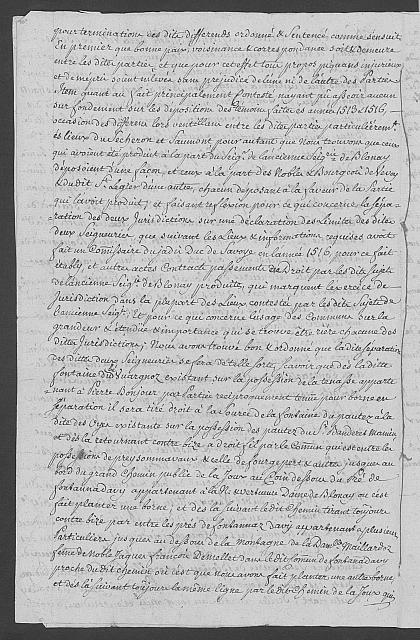 pour terminations des dits differends ordonné & Sentencé, comme s'ensuit
En premier que bonne paix, voisinance & correspondance soit & demeure
entre les dites parties, et que pour cet effet tous propos piquans injurieux
et de mepris soient enlevés sans prejudice de l'une ni de l'autre des Parties
Item quant au fait principalement contesté, n'ayant pû asseoir aucun
sur fondement sur les depositions des Temoins faites és années 1513 & 1516,
occasion des differens lors ventillens entre les dites parties particulierem.t
és lieux du Secheron et Saumont pour autant que Nous trouvons que ceux
qui avoient eté produit à la part du Seig.r de l'ancienne Seig.rie de Blonay
deposoient d'une façon, et ceux à la part des Nobles & Bourgeois de Vevey
& du dit S.t Legier d'une autre, chacun deposant à la faveur de la Partie
qui l'avoit produit, et faisant reflexion pour ce qui concerne la sepa-
ration des deux Jurisdictions, sur une declaration des limites des dites
deux Seigneuries, que suivant les Lieux & informations requises avoit
fait un Comissaire du jadis Duc de Savoye en l'année 1516, pour ce fait
etabli, et autres actes Contracts passements de Droit par les dits Sujets
de l'ancienne Seig.rie de Blonay produits, qui marquent l'exercice de
Jurisdiction dans la pluspart des lieux contestés par les dits Sujets de
l'ancienne Seig.rie, Et pour ce qui concerne l'usage des Communs Sur la
grandeur & etendüe & importance qui se trouve etre rière chacune des
dittes Jurisdictions; Nous avons trouvé bon & ordonné que la dite separation
des dittes deux Seigneuries se fera de telle sorte, sçavoir que dès la ditte
fontaine existant sur la possession de la tenasse apparte
nant à Pierre Bonjour par Partie reciproquement tenüe pour borne en
separation il sera tiré droit à la source de la fontaine du pautex à la
dite des Oyes existante sur la possession des pautex du S.r Banderet Mamin
et dès là retournant contre bize à droit fil par le Commun qui est entre les
possessions de prey sommavaux & celle de fourgepert & autres jusques au
bord du grand Chemin public de la Joux au Coin dessous du Pré de
fontanna davy appartenant à la R. & vertueuse Dame de Blonay ou c'est
fait planter une borne, et dès là suivant le dit Chemin tirant toujours
contre bize par entre les prés de fontannaz Davy appartenant à plusieurs
particuliers jusques au dessous de la Montagne de la Dam.lle Maillardoz
feme de Noble Jaques François De Mellet dans le dit Comun de fontanna davy
proche du dit chemin où c'est que Nous avons fait planter une autre borne
et dès là suivant toujours la même ligne par le dit Chemin de la Joux qui